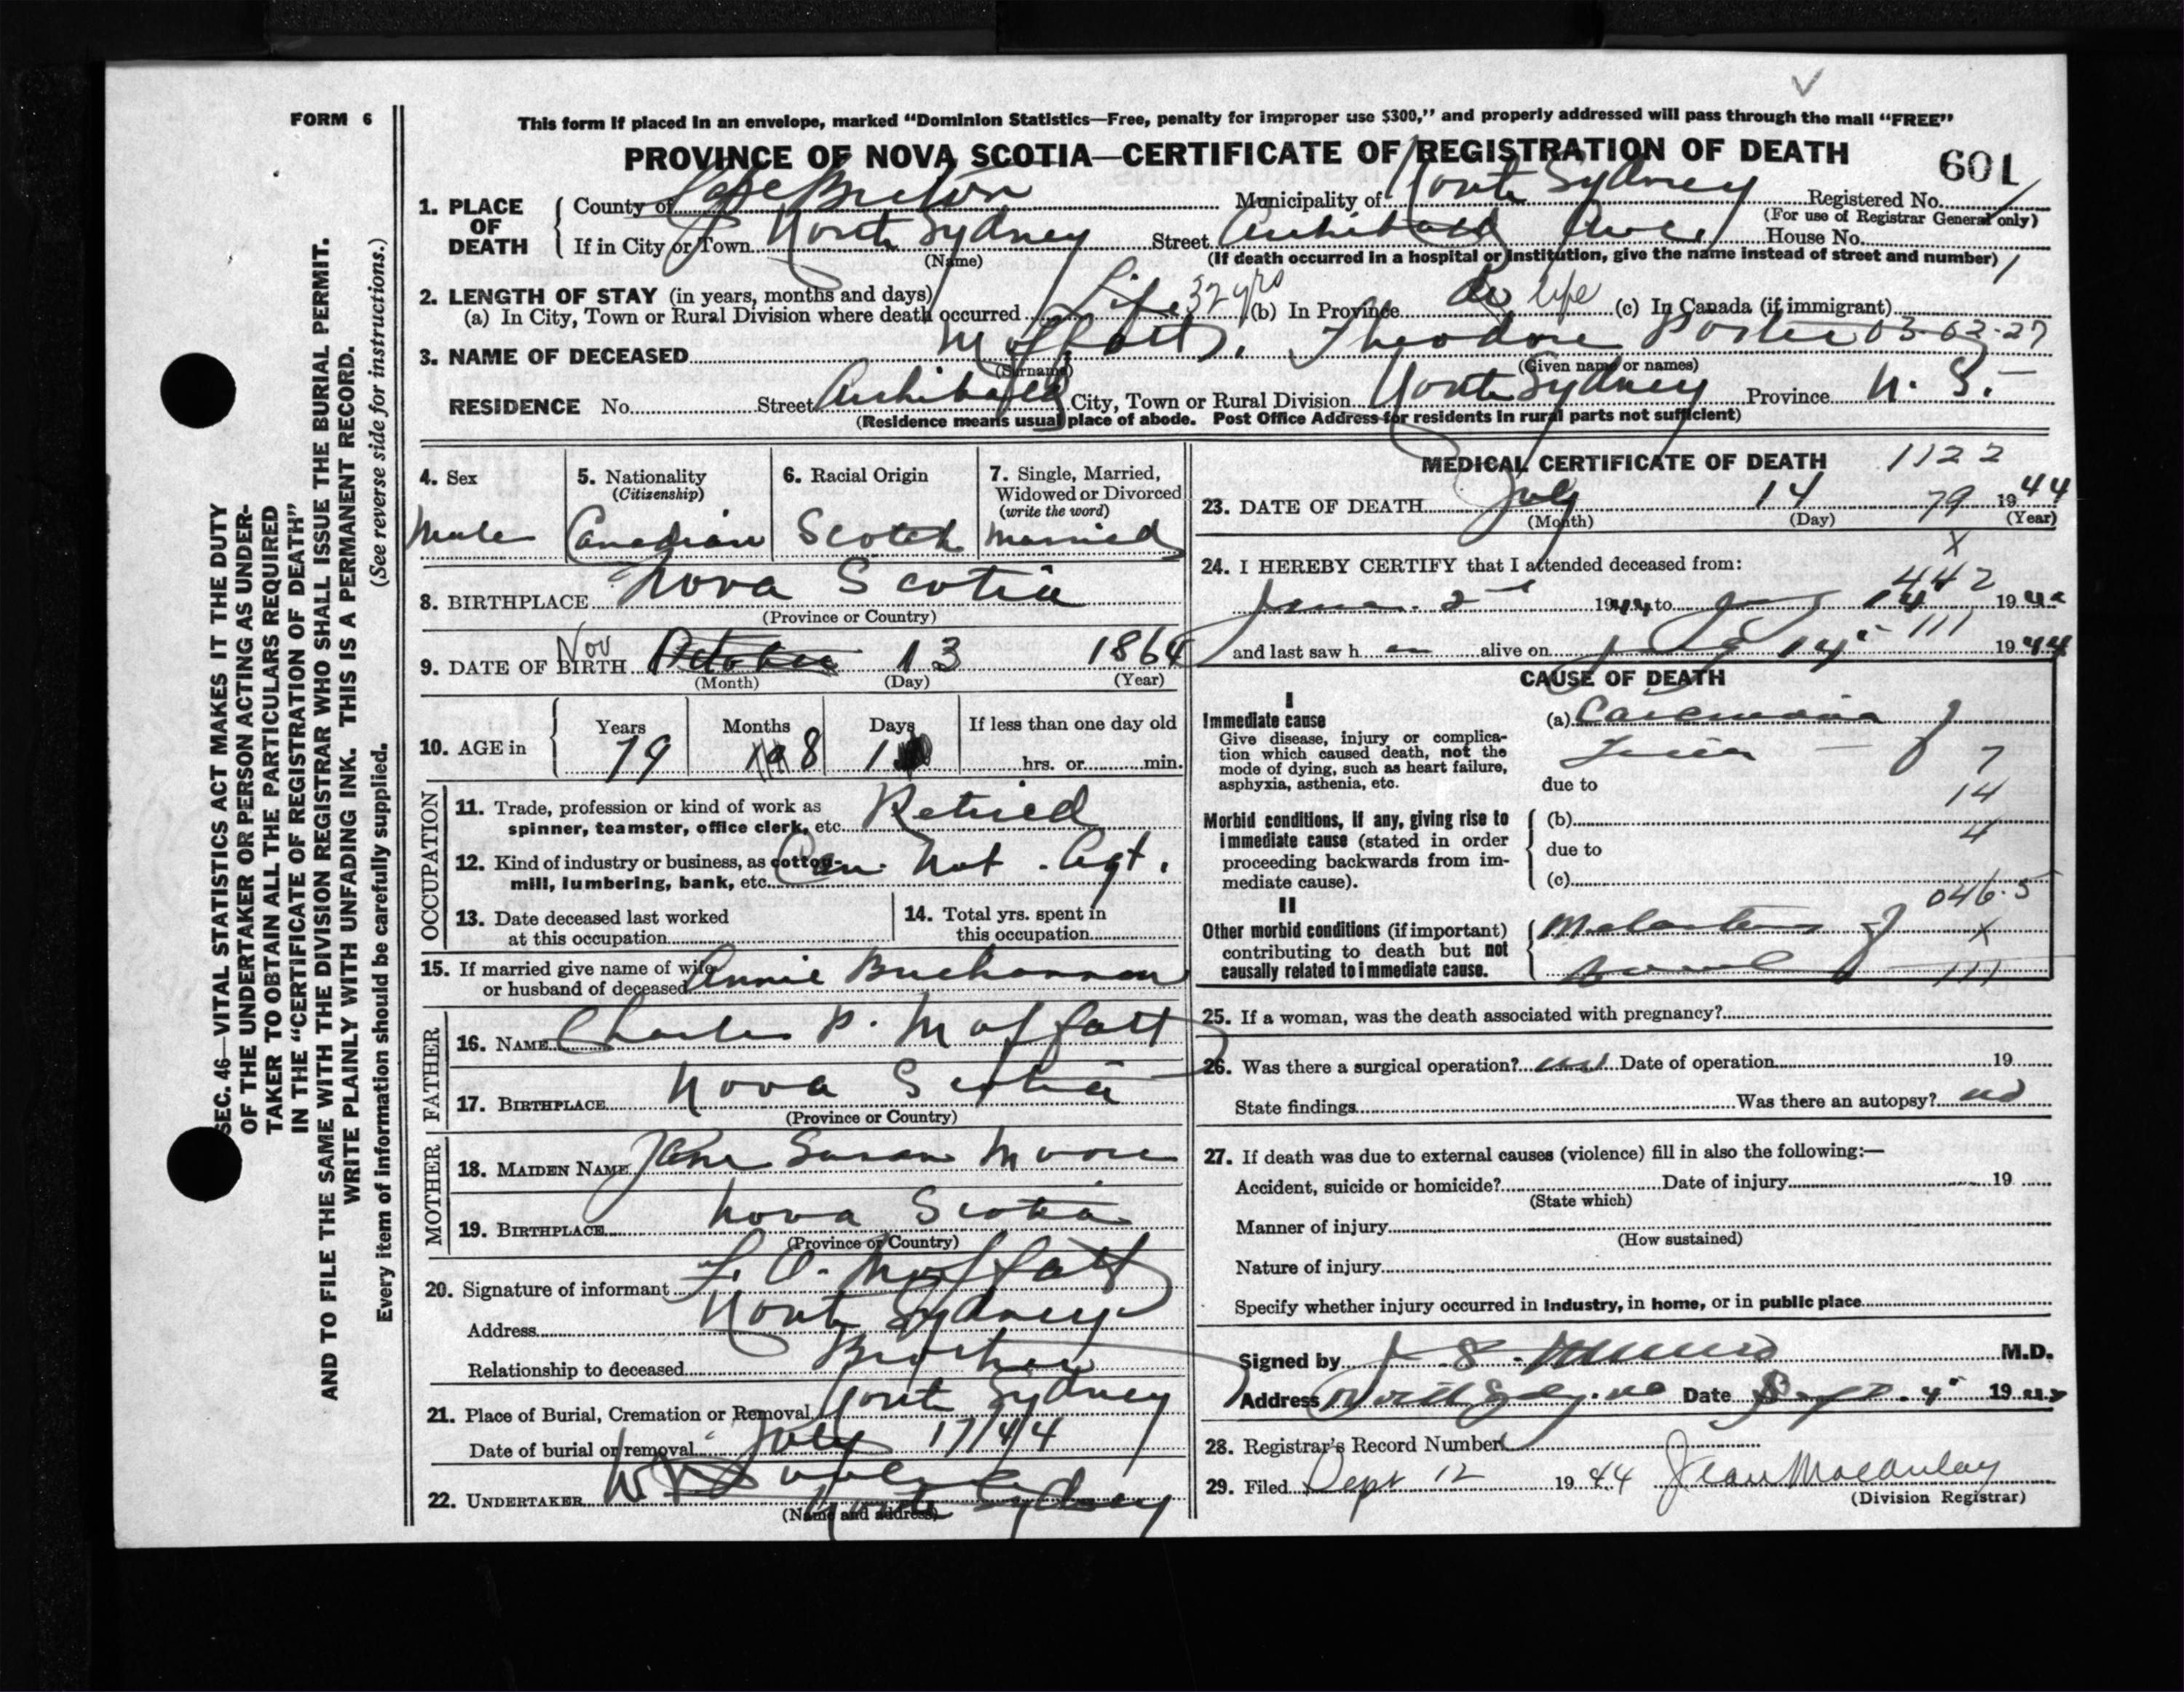 FORM 6
This form if placed in an envelope, marked “Dominion Statistics—Free, penalty for improper use $300,” and properly addressed will pass through the mail “FREE”
PROVINCE OF NOVA SCOTIA—CERTIFICATE OF REGISTRATION OF DEATH
601
1. PLACE OF DEATH
County of Cape Breton Municipality of North Sydney Registered No.
(For use of Registrar General only)
If in City or Town North Sydney Street Archibald Ave. House No.
(Name)
(If death occurred in a hospital or institution, give the name instead of street and number)
2. LENGTH OF STAY (in years, months and days)
(a) In City, Town or Rural Division where death occurred Life 32 yrs (b) In Province do life (c) In Canada (if immigrant)
3. NAME OF DECEASED Moffatt, Theodore Porter 03-03-27
(Surname) (Given name or names)
RESIDENCE No. Street Archibald City, Town or Rural Division North Sydney Province N. S.
(Residence means usual place of abode. Post Office Address for residents in rural parts not sufficient)
4. Sex
Male
5. Nationality
(Citizenship)
Canadian
6. Racial Origin
Scotch
7. Single, Married, Widowed or Divorced
(write the word)
Married
8. BIRTHPLACE Nova Scotia
(Province or Country)
9. DATE OF BIRTH Nov October 13 1864
(Month) (Day) (Year)
10. AGE in
Years Months Days If less than one day old
79 8 1 hrs. or min.
OCCUPATION
11. Trade, profession or kind of work as
spinner, teamster, office clerk, etc. Retired
12. Kind of industry or business, as cotton-
mill, lumbering, bank, etc. Can Nat. Agt.
13. Date deceased last worked
at this occupation
14. Total yrs. spent in
this occupation
15. If married give name of wife
or husband of deceased Annie Buchannan
FATHER
16. NAME Charles P. Moffatt
17. BIRTHPLACE Nova Scotia
(Province or Country)
MOTHER
18. MAIDEN NAME Jane Susan Moore
19. BIRTHPLACE Nova Scotia
(Province or Country)
20. Signature of informant F. O. Moffatt
Address North Sydney
Relationship to deceased Brother
21. Place of Burial, Cremation or Removal North Sydney
Date of burial or removal July 17/44
22. UNDERTAKER
North Sydney
(Name and address)
MEDICAL CERTIFICATE OF DEATH 1122
23. DATE OF DEATH July 14 79 1944
(Month) (Day) (Year)
X
24. I HEREBY CERTIFY that I attended deceased from:
442
19 to 14 19
111
and last saw h alive on 14 1944
CAUSE OF DEATH
I
Immediate cause
Give disease, injury or complica-
tion which caused death, not the
mode of dying, such as heart failure,
asphyxia, asthenia, etc.
(a) Carcinoma of
7
due to
14
Morbid conditions, if any, giving rise to
immediate cause (stated in order
proceeding backwards from im-
mediate cause).
(b)
4
due to
(c)
046.5
II
Other morbid conditions (if important)
contributing to death but not
causally related to immediate cause.
of
X
111
25. If a woman, was the death associated with pregnancy?
26. Was there a surgical operation? no Date of operation 19
State findings Was there an autopsy? no
27. If death was due to external causes (violence) fill in also the following:—
Accident, suicide or homicide? Date of injury 19
(State which)
Manner of injury
(How sustained)
Nature of injury
Specify whether injury occurred in Industry, in home, or in public place
Signed by M.D.
Address Date Sept. 4 19
28. Registrar's Record Number
29. Filed Sept 12 1944 Jean Macaulay
(Division Registrar)
SEC. 46—VITAL STATISTICS ACT MAKES IT THE DUTY
OF THE UNDERTAKER OR PERSON ACTING AS UNDER-
TAKER TO OBTAIN ALL THE PARTICULARS REQUIRED
IN THE “CERTIFICATE OF REGISTRATION OF DEATH”
AND TO FILE THE SAME WITH THE DIVISION REGISTRAR WHO SHALL ISSUE THE BURIAL PERMIT.
WRITE PLAINLY WITH UNFADING INK. THIS IS A PERMANENT RECORD.
Every item of information should be carefully supplied. (See reverse side for instructions.)